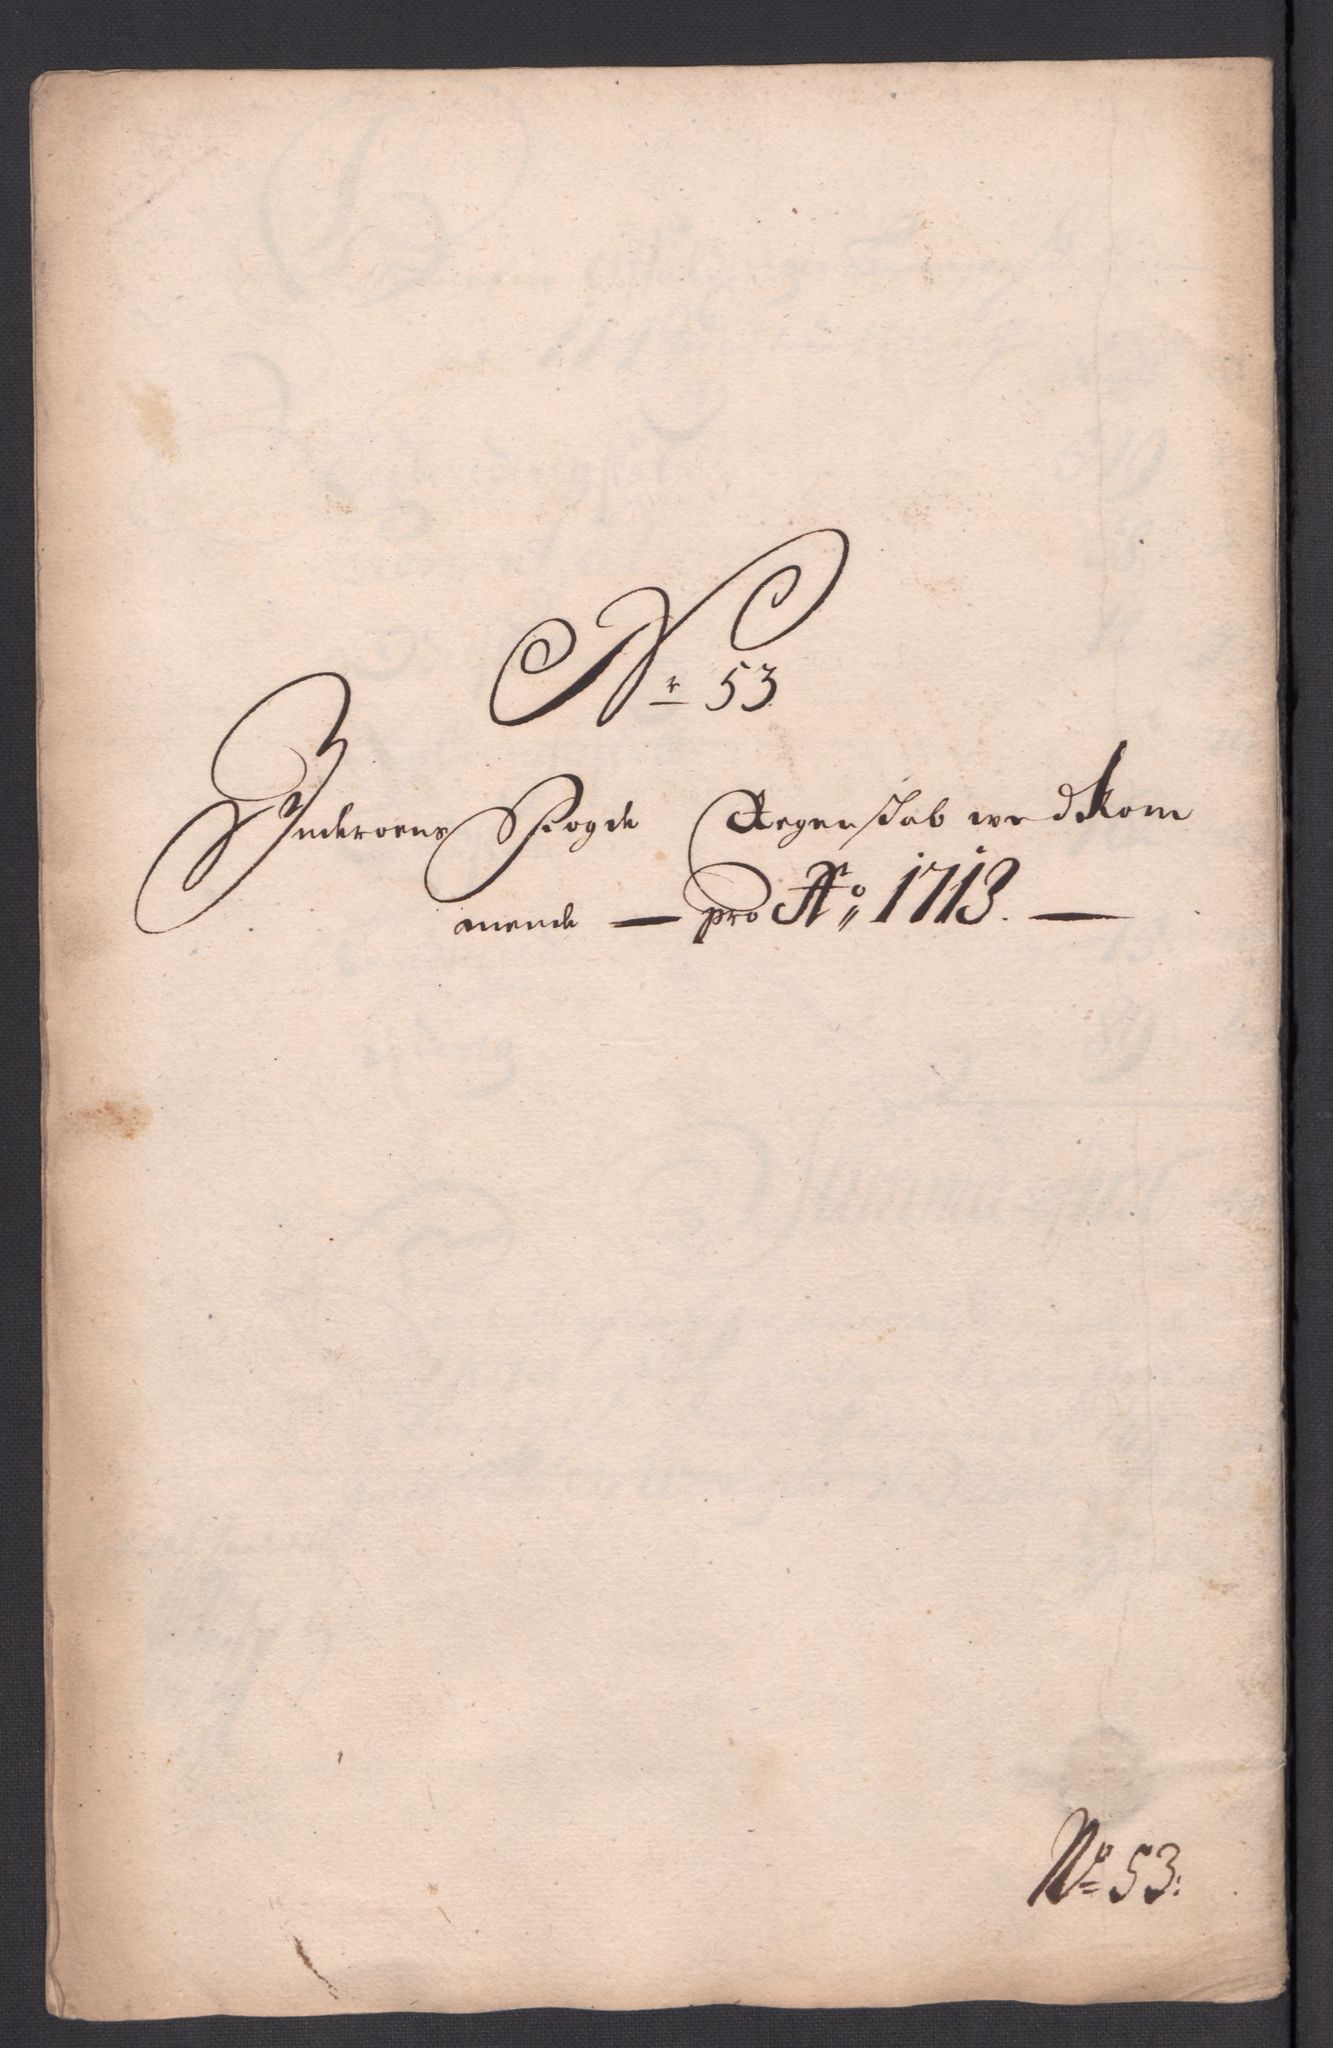 Nr 53
Inderoens Fogde Regenskab wedkom
mende — pro Ao 1713. —
No 53: